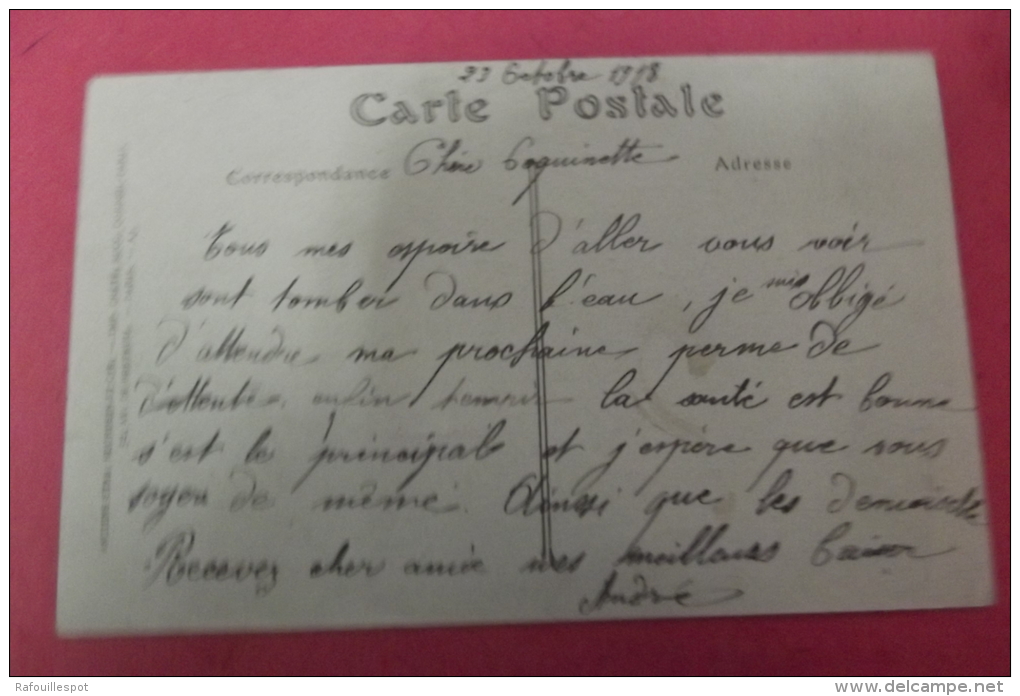 23 Octobre 1918
Carte Postale
Correspondance
Chère Coquinette
Adresse
tous mes espoire d'aller vous voir
sont tomber dans l'eau, je mis obligé
d'attendre ma prochaine perme de
enfin la santé est bonne
s'est le principal et j'espère que vous
soyer de même. Ainsi que les demoiselle
Recevez cher amie mes meilleurs baiser
André
Rafouillespot
www.delcampe.net